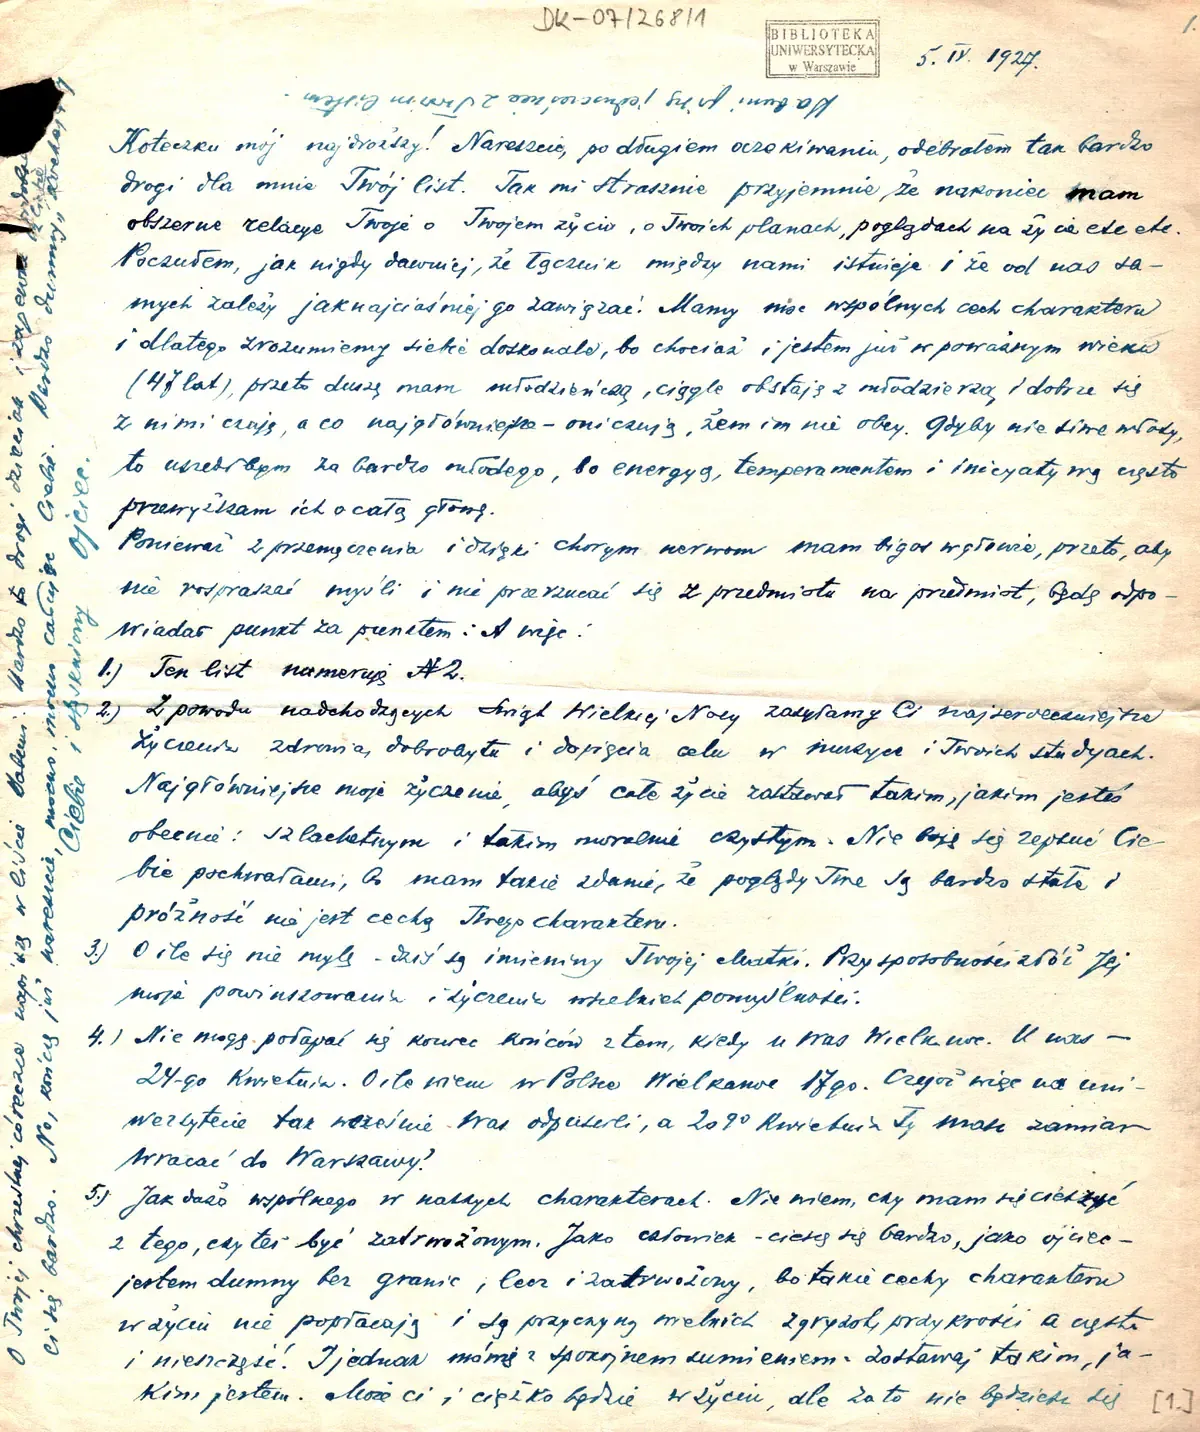 DK-07/268/1
1.
BIBLIOTEKA
UNIWERSYTECKA
w Warszawie
5. IV. 1927.
Habuni piszę jednocześnie z Twoim listem.
Koteczku mój najdroższy! Nareszcie, po długiem oczekiwaniu, odebrałem tak bardzo
drogi dla mnie Twój list. Tak mi strasznie przyjemnie, że nakoniec mam
obszerne relacye Twoje o Twojem życiu, o Twoich planach, poglądach na życie etc etc.
Poczułem, jak nigdy dawniej, że łącznik między nami istnieje i że od nas sa-
mych zależy jaknajciaśniej go zawiązać. Mamy moc wspólnych cech charakteru
i dlatego zrozumiemy siebie doskonale, bo chociaż i jestem już w poważnym wieku
(47 lat), przeto duszę mam młodzieńczą, ciągle obstaję z młodzierzą i dobrze się
z nimi czuję, a co najgłówniejsze - oni czują, żem im nie obcy. Gdyby nie siwe włosy,
to uszedłbym za bardzo młodego, bo energyą, temperamentem i inicyatywą często
przewyższam ich o całą głowę.
Ponieważ z przemęczenia i dzięki chorym nerwom mam bigos w głowie, przeto, aby
nie rospraszać myśli i nie przerzucać się z przedmiotu na przedmiot, będę odpo-
wiadał punkt za punktem: A więc:
1.) Ten list numeruję N 2.
2.) Z powodu nadchodzących Świąt Wielkiej Nocy zasyłamy Ci najserdeczniejsze
życzenia zdrowia, dobrobytu i dopięcia celu w muzyce i Twoich studyach.
Najgłówniejsze moje życzenie, abyś całe życie zostawał takim, jakim jesteś
obecnie: szlachetnym i takim moralnie czystym. Nie boję się zepsuć Cie-
bie pochwałami, bo mam takie zdanie, że poglądy Twe są bardzo stałe i
próżność nie jest cechą Twego charakteru.
3.) O ile się nie mylę - dziś są imieniny Twojej Matki. Przy sposobności złóż Jej
moje powinszowania i życzenia wszelkich pomyślności.
4.) Nie mogę połapać się koniec końców z tem, kiedy u Was Wielkanoc. U nas -
24-go Kwietnia. O ile wiem w Polsce Wielkanoc 17go. Czegoż więc na uni-
wersytecie tak wcześnie Was odpuścili, a 20go Kwietnia Ty masz zamiar
wracać do Warszawy?
5.) Jak dużo wspólnego w naszych charakterach. Nie wiem, czy mam się cieszyć
z tego, czy też być zatrwożonym. Jako człowiek - cieszę się bardzo, jako ojciec -
jestem dumny bez granic, lecz i zatrwożony, bo takie cechy charakteru
w życiu nie popłacają i są przyczyną wielkich zgryzot, przykrości a często
i nieszczęść. I jednak mówię z spokojnem sumieniem - zostawaj takim, ja-
kim jesteś. Może ci i ciężko będzie w życiu, ale za to nie będziesz się
[1.]
O Twojej chrzestnej córeczce napiszę w liście Habuni. Bardzo to drogi dzieciak i zapewne
ci się bardzo. No, kończę już nareszcie, mocno, mocno całując Ciebie. Bardzo dumny, kochający
Ciebie i stęskniony Ojciec.